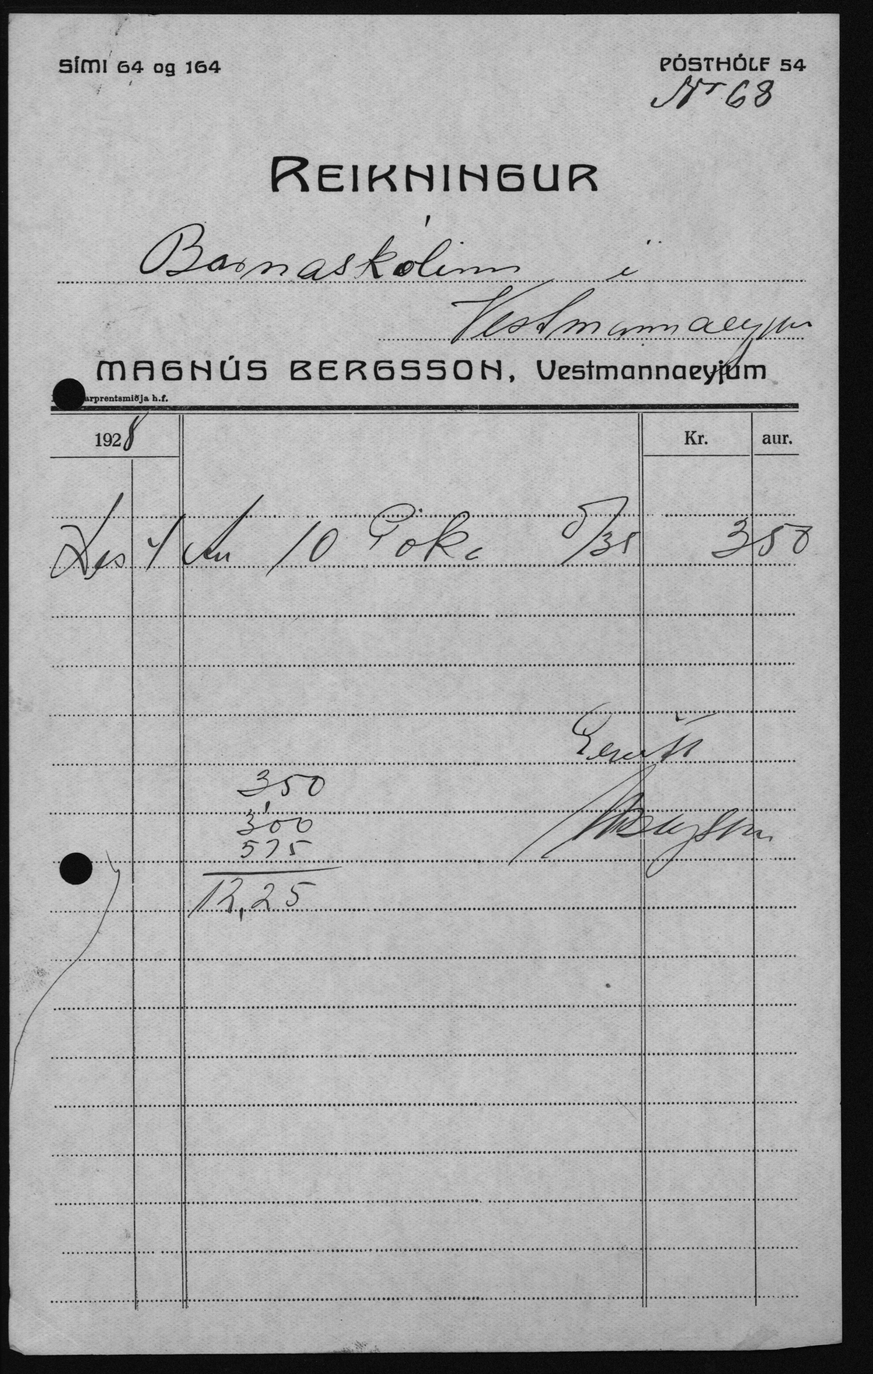 SÍMI 64 og 164
PÓSTHÓLF 54
Nr 68
REIKNINGUR
Barnaskólinn í
Vestmannaeyjum
MAGNÚS BERGSSON, Vestmannaeyjum
arprentsmiðja h.f.
1928 Kr. aur.
Des 4 10 /35 3 50
350
300
575
12,25